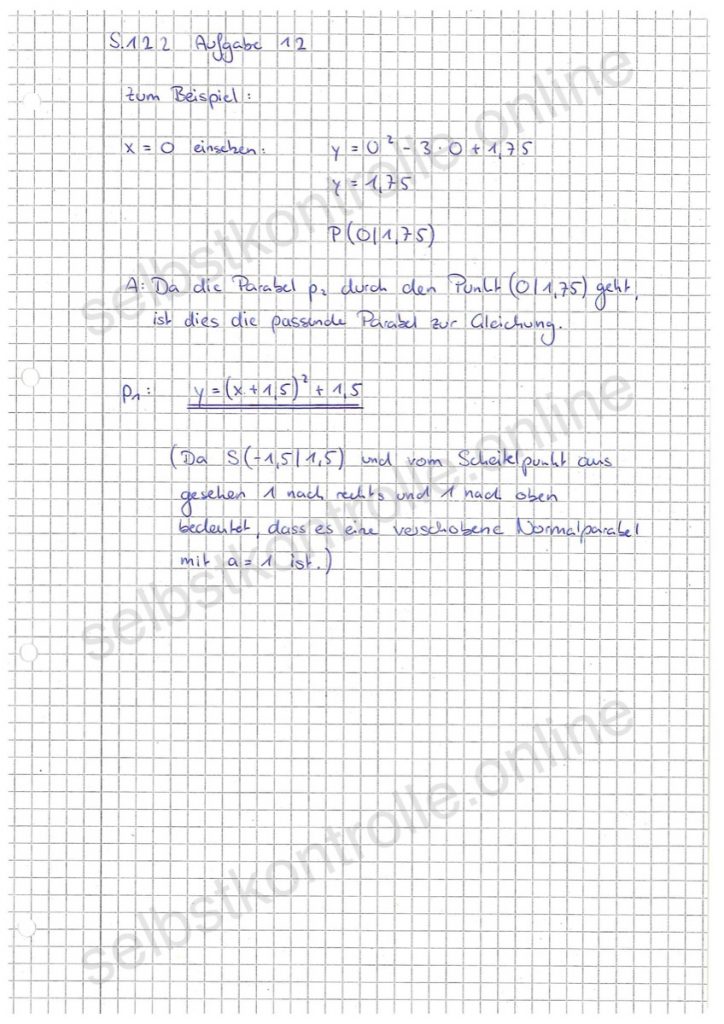 S.122 Aufgabe 12
zum Beispiel:
x = 0 einsetzen: y = 0² - 3 · 0 + 1,75
y = 1,75
P(0|1,75)
A: Da die Parabel p₂ durch den Punkt (0|1,75) geht,
ist dies die passende Parabel zur Gleichung.
p₁: y = (x + 1,5)² + 1,5
(Da S(-1,5|1,5) und vom Scheitelpunkt aus
gesehen 1 nach rechts und 1 nach oben
bedeutet, dass es eine verschobene Normalparabel
mit a = 1 ist.)
selbstkontrolle.online
selbstkontrolle.online
selbstkontrolle.online